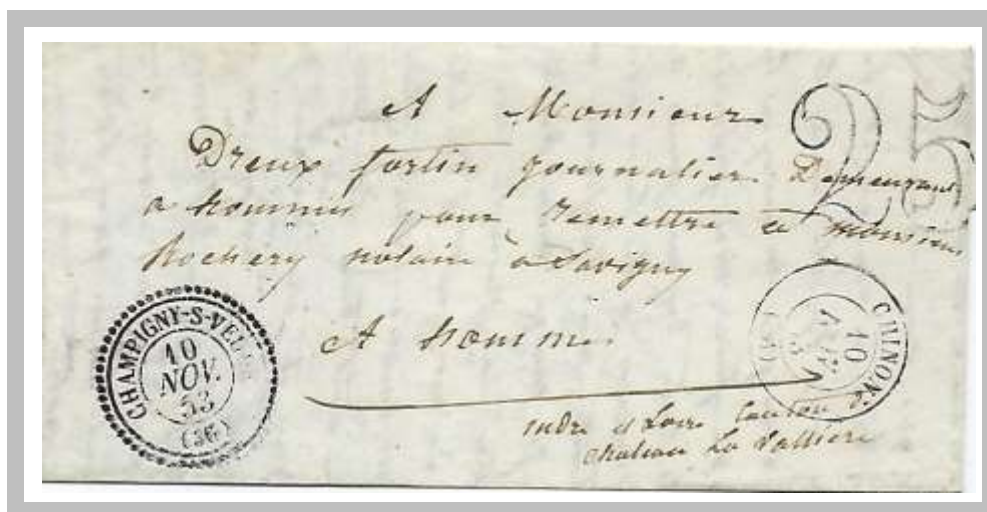 A Monsieur
25
Dreux fortin journalier Demeurant
a hommes pour remettre a monsieur
Rochery notaire à Savigny
A hommes
CHAMPIGNY-S-VEUDE
10
NOV.
53
(36)
CHINON
10
NOV.
53
(36)
indre et Loire Canton de
chateau La Valliere